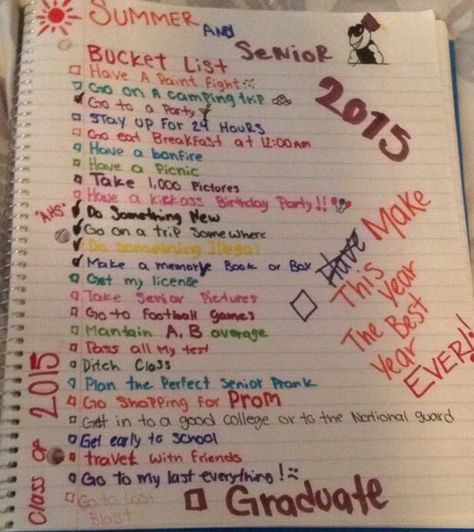 SUMMER
AND
SENIOR
BUCKET LIST
2015
Have A Paint fight
Go on A camping trip
Go to a Party
STAY UP FOR 24 HOURS
Go eat Breakfast at 12:00am
Have a bonfire
Have a Picnic
Take 1,000 Pictures
Have a kickass Birthday Party!!
"AHS"
Do Something New
Go on a trip Somewhere
Do Something Illegal
Make a memorye Book or Box
Get my license
Take Senior Pictures
Go to Football games
Mantain A, B average
Pass all My test
Ditch Class
Plan the Perfect Senior Prank
Go Shopping for PROM
Get in to a good college or to the National guard
Get early to school
travel with friends
Go to my last everything!
Go to Last
Blast
Graduate
Have Make
This year
The Best
Year
EVER!
Class OF 2015